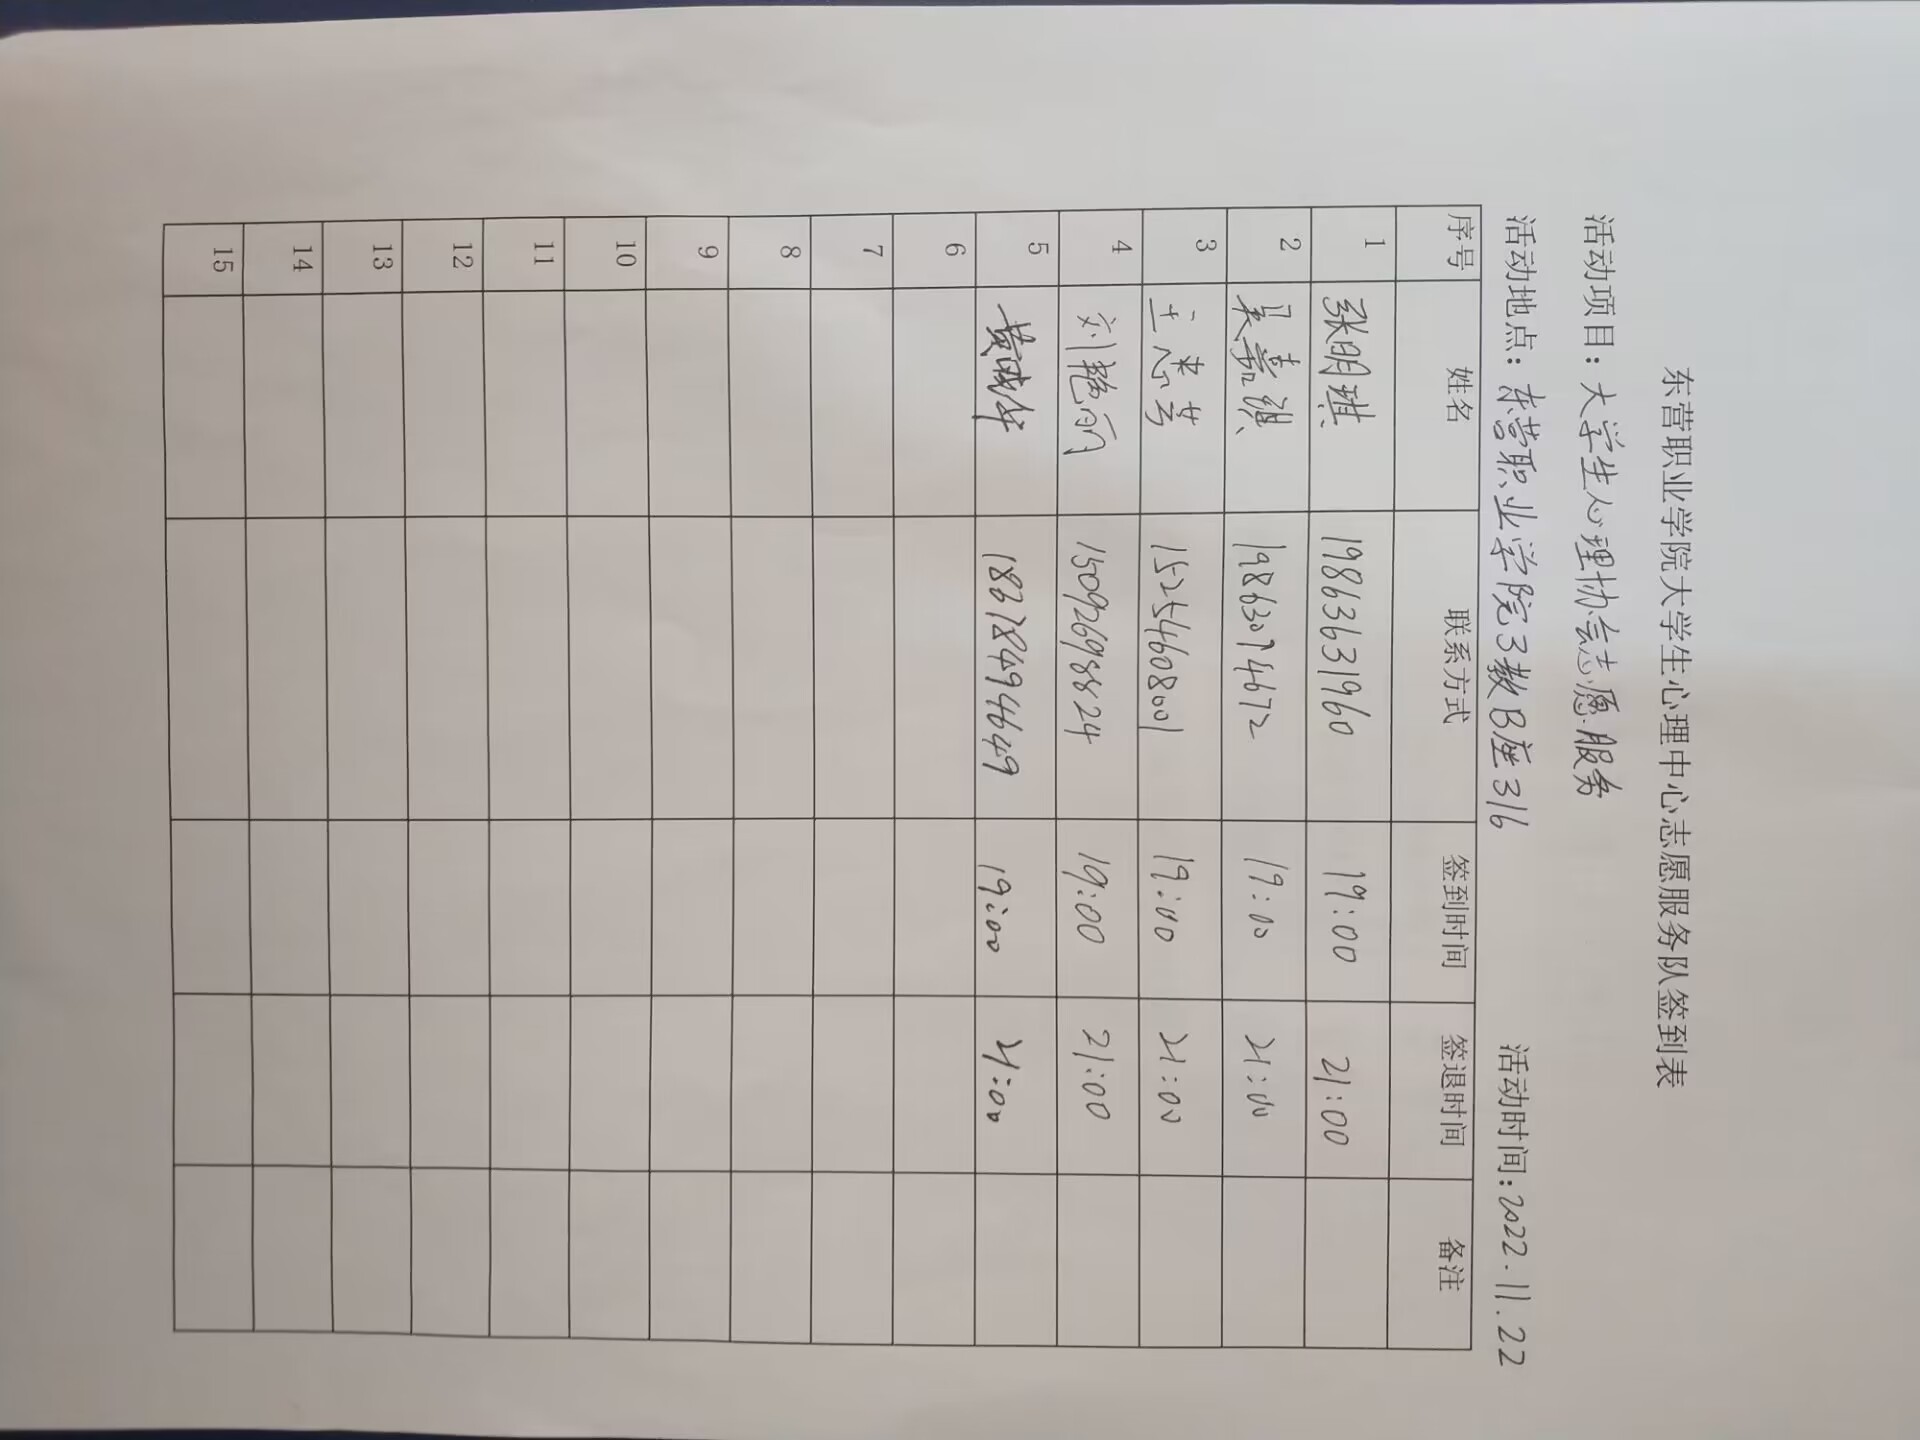 东营职业学院大学生心理中心志愿服务队签到表
活动项目：大学生心理协会志愿服务
活动地点：东营职业学院3教B座316 活动时间：2022.11.22
序号 姓名 联系方式 签到时间 签退时间 备注
1 张明琪 19863631960 19:00 21:00
2 吴嘉祺 19863074672 19:00 21:00
3 王惠芳 15254608001 19:00 21:00
4 刘艳丽 15092698824 19:00 21:00
5 黄成华 18378494649 19:00 21:00
6
7
8
9
10
11
12
13
14
15